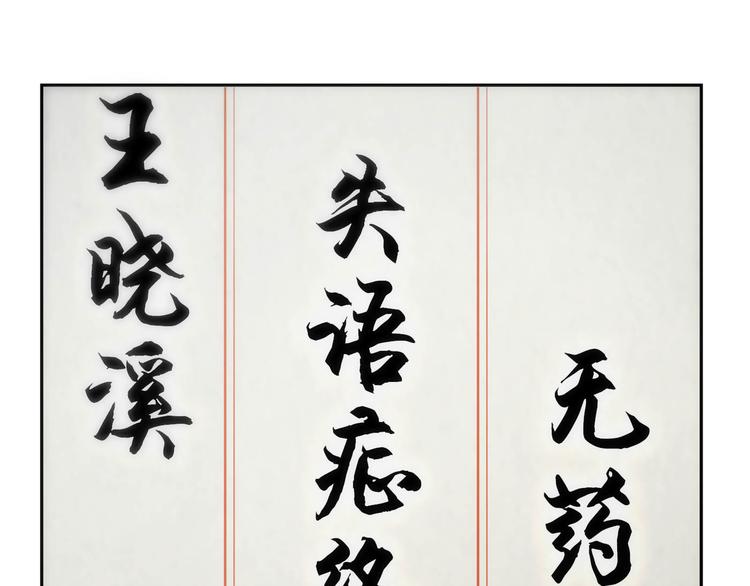 王晓溪
失语症
无药